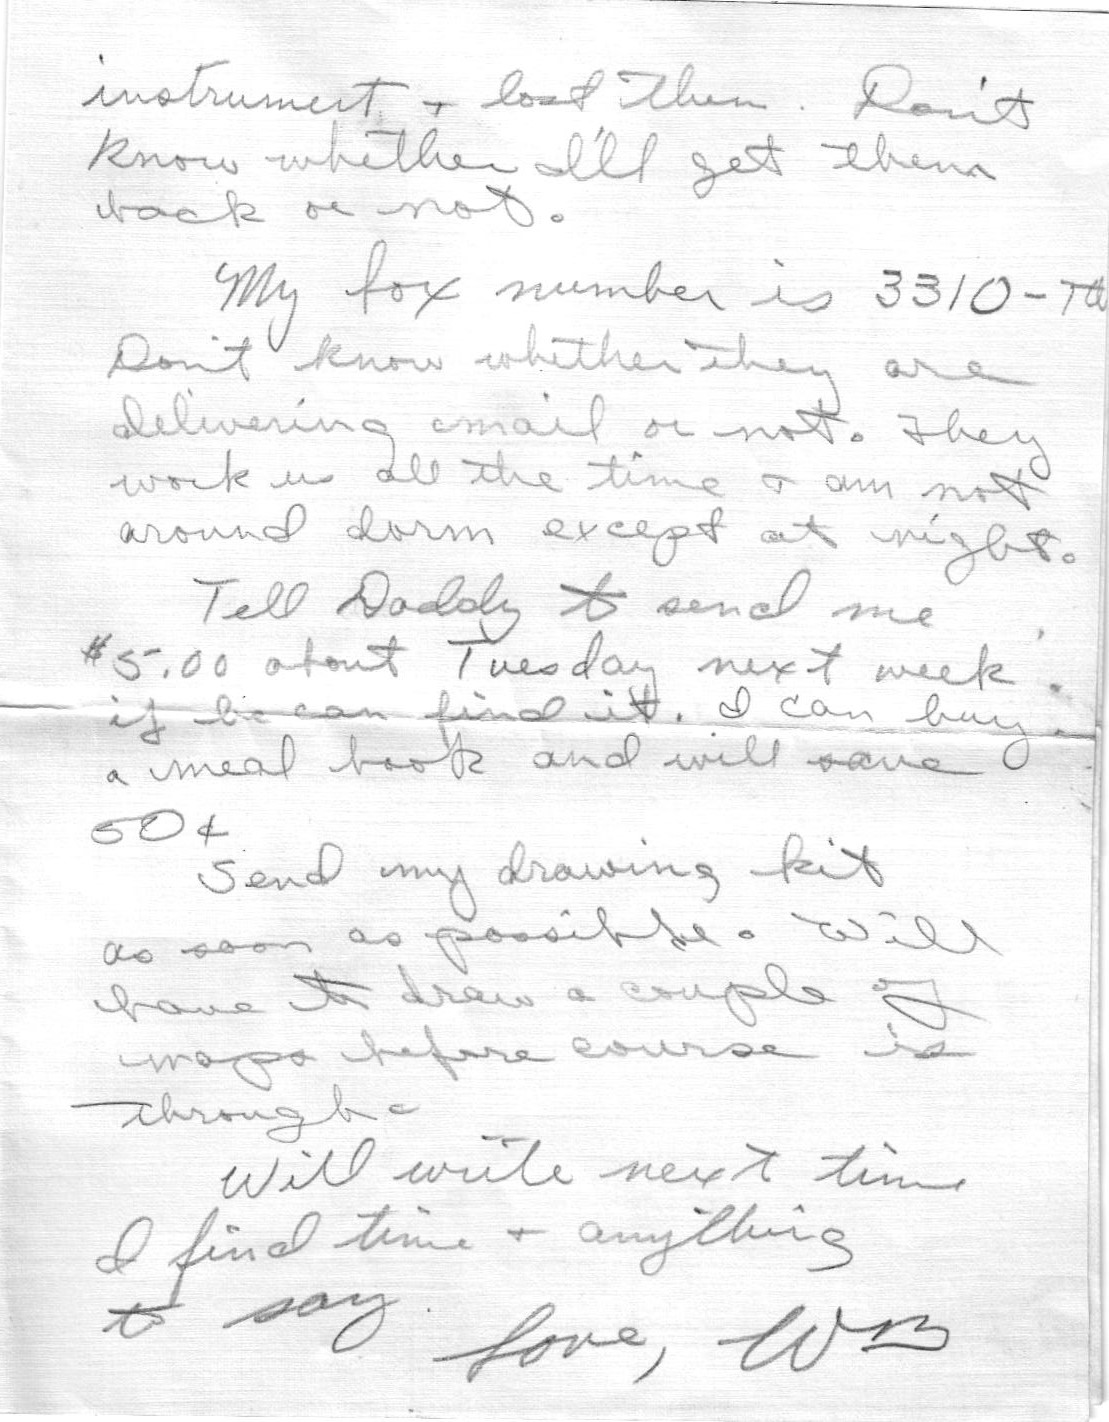 instrument + lost them. Don't
know whether I'll get them
back or not.
My fox number is 3310-TW
Don't know whether they are
delivering mail or not. They
work us all the time + am not
around dorm except at night.
Tell Daddy to send me
$5.00 about Tuesday next week.
if he can find it. I can buy
a meal book and will save
50¢
Send my drawing kit
as soon as possible. Will
have to draw a couple of
maps before course is
through.
Will write next time
I find time + anything
to say.
Love, WB